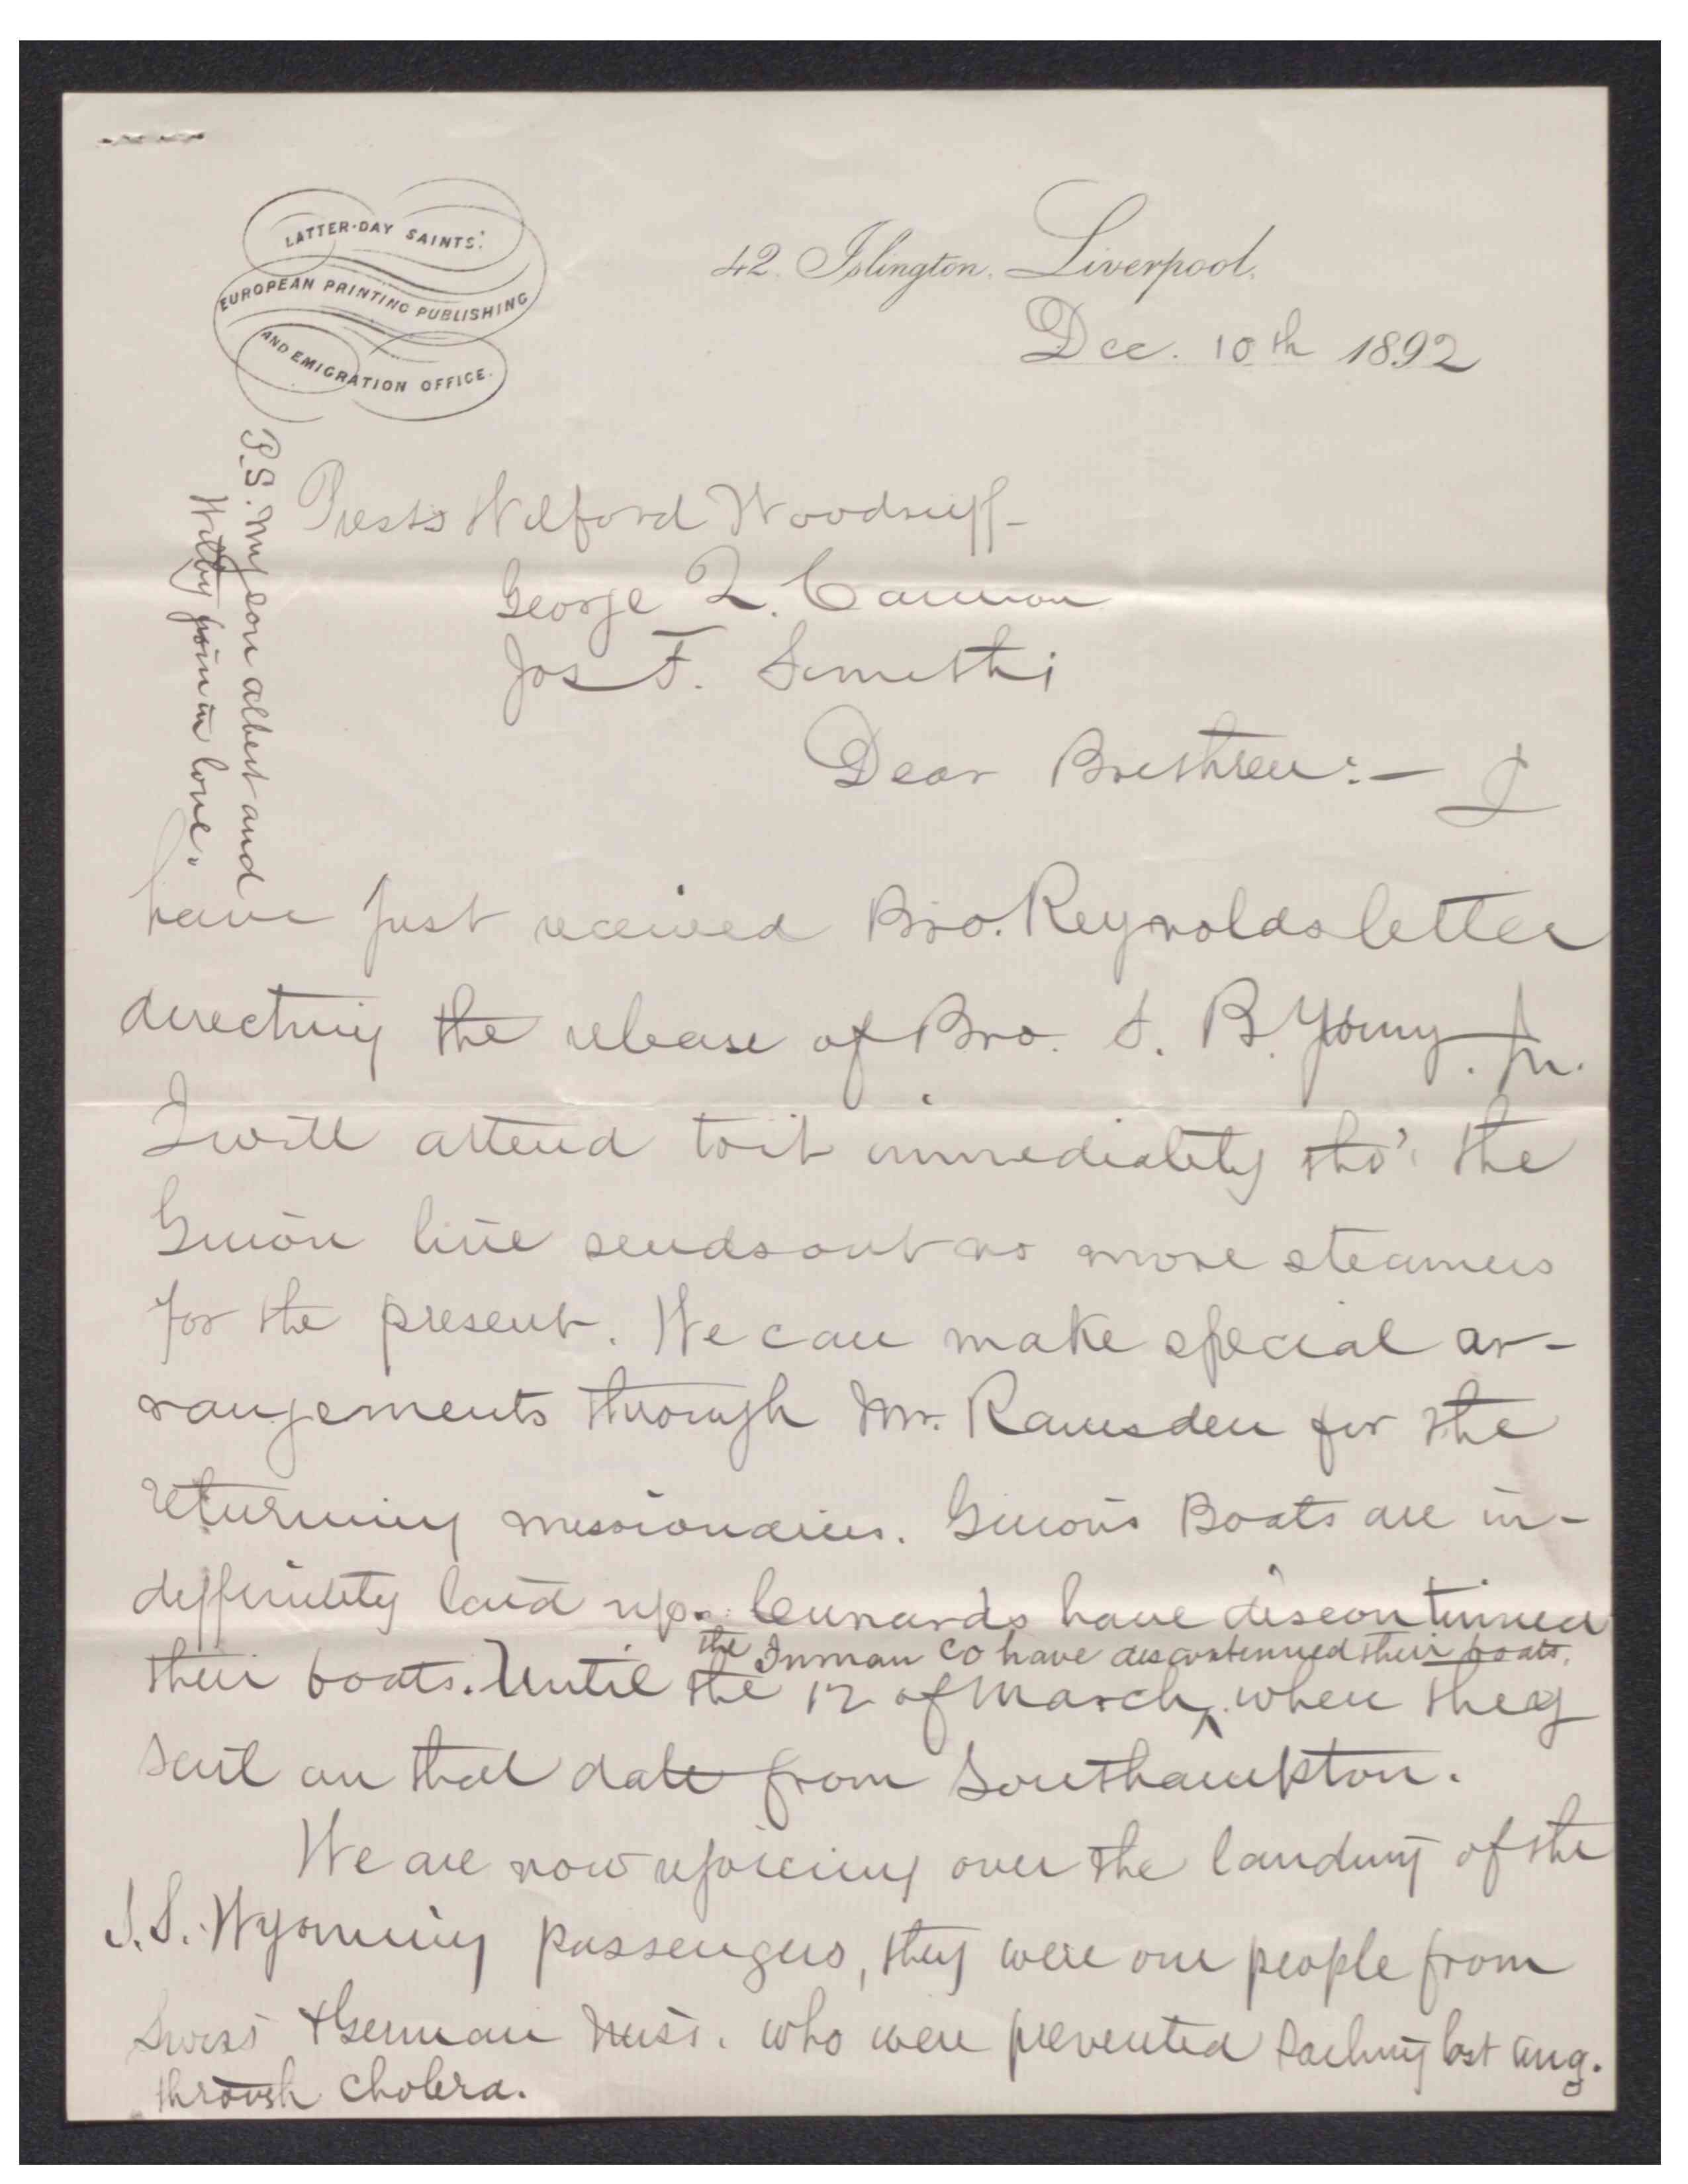 LATTER-DAY SAINTS'
EUROPEAN PRINTING PUBLISHING
AND EMIGRATION OFFICE.
42. Islington. Liverpool,
Dec. 10th 1892
Prests Wilford Woodruff-
George Q. Cannon
Jos F. Smith;
Dear Brethren:— I
have just received Bro. Reynolds letter
directing the release of Bro. S. B. Young. Jr.
I will attend to it immediately tho' the
Guion line sends out no more steamers
for the present. We can make special ar-
rangements through Mr. Ramsden for the
returning missionaries. Guion's Boats are in-
deffinitely laid up. Cunards have discontinued
the Inman Co have discontinued their boats.
their boats. Until the 12 of March, ^ when they
sail on that date from Southampton.
We are now rejoicing over the landing of the
S.S. Wyoming passengers, they were our people from
Swiss & German Miss. who were prevented sailing last Aug.
through cholera.
P.S. My son albert and
Willy join in love.